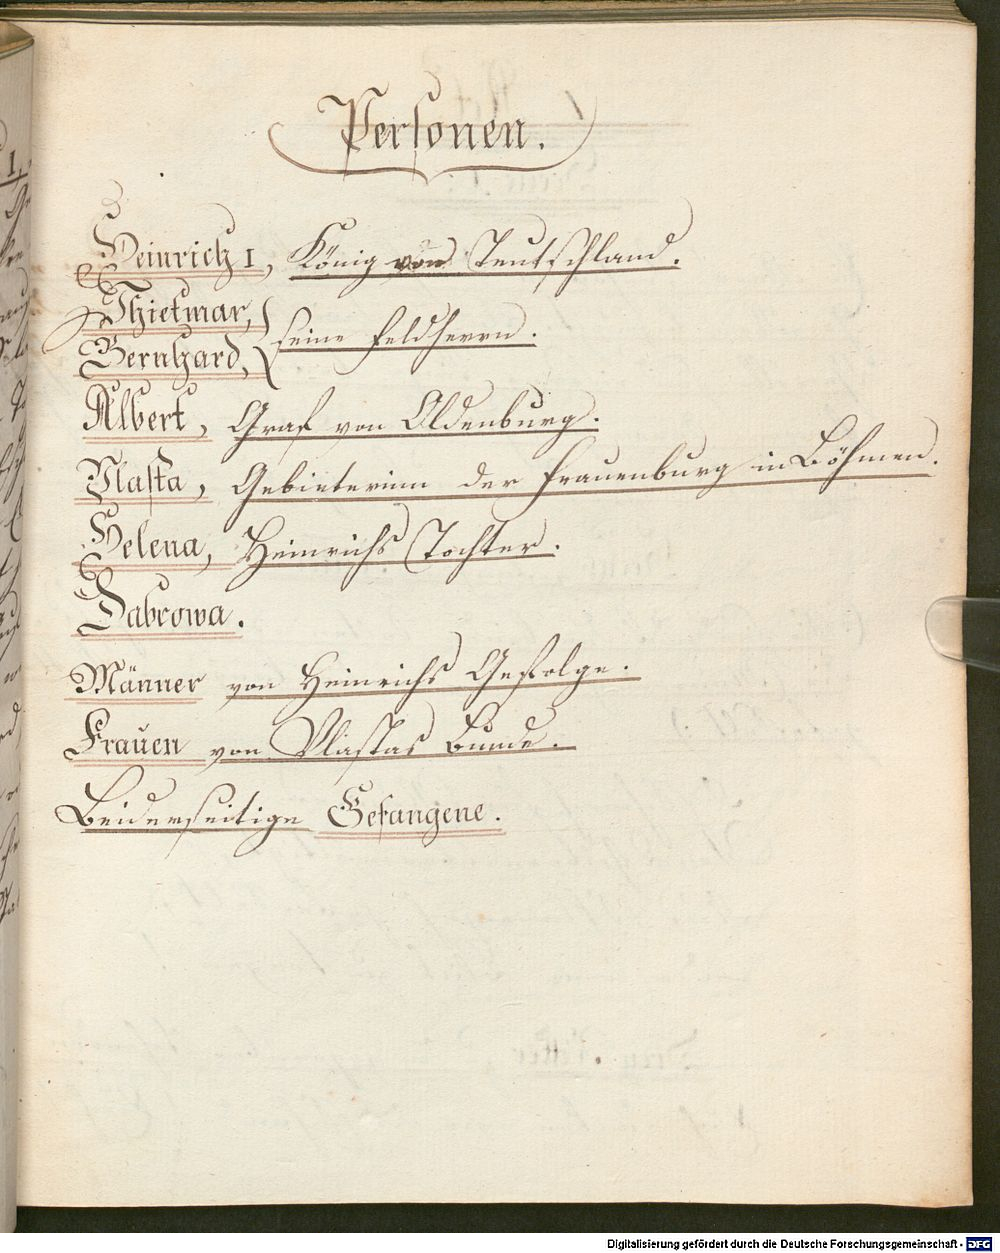 Personen.
Heinrich I, König von Teutschland.
Thietmar,
seine Feldherrn.
Bernhard,
Albert, Graf von Oldenburg.
Vlasta, Gebieterinn der Frauenburg in Böhmen.
Helena, Heinrichs Tochter.
Dabrowa.
Männer von Heinrichs Gefolge.
Frauen von Vlastas Bunde.
Beiderseitige Gefangene.
Digitalisierung gefördert durch die Deutsche Forschungsgemeinschaft - DFG